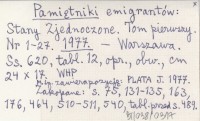 Pamiętniki emigrantów:
Stany Zjednoczone. Tom pierwszy.
Nr 1-27. 1977. — Warszawa.
Ss. 620, tabl. 12, opr., obw., cm
24 x 17. WHP
PLATA J. 1977.
Zakopane: s. 75, 131-135, 163,
176, 464, 510-511, 540, tabl. przed s. 489.